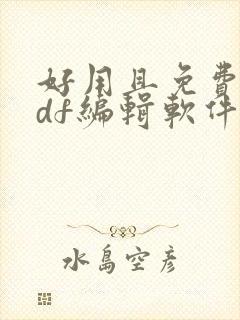 好用且免費
df編輯軟件
水島空彥